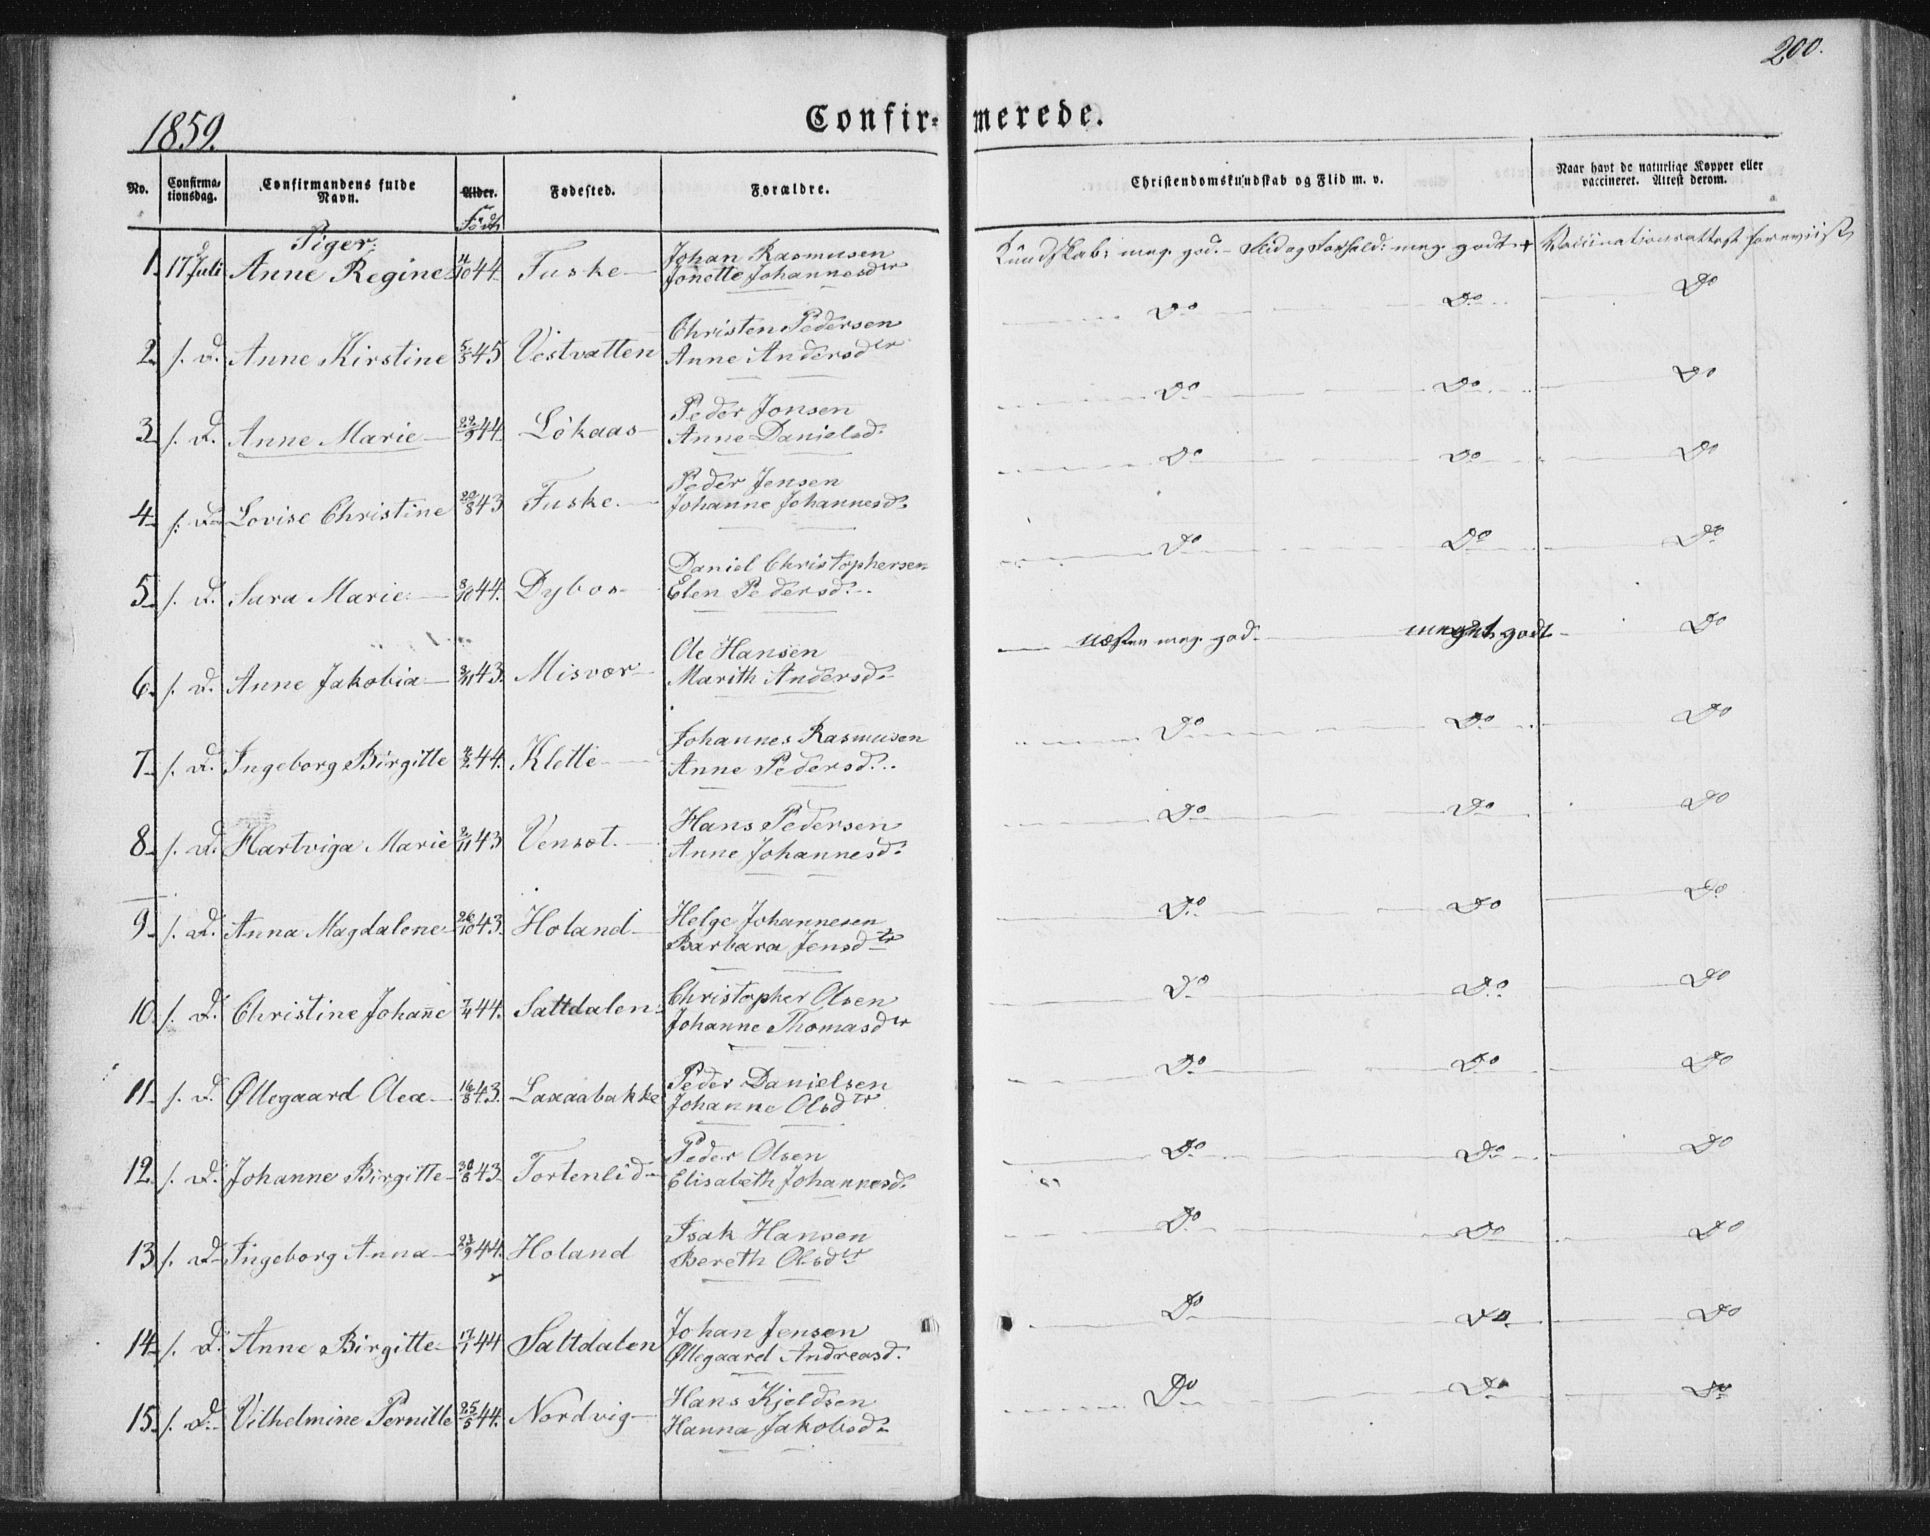 200.
1859.
Confir- merede.
No. Confirma-tionsdag. Confirmandens fulde Navn. Alder. Fødested. Forældre. Christendomskundskab og Flid m. v. Naar havt de naturlige Kopper eller vaccineret. Attest derom.
Født
Piger:
1. 17d Juli Anne Regine 44. Fuske Johan Rasmusen
Jonette Johannesdtr
Kundskab: meg. god. Flid og Forhold: meg. godt Vaccinationsattest foreviist
2. s. D. Anne Kirstine 5/5 45 Vestvatten Christen Pedersen
Anne Andersdtr Do Do Do
3. s. D. Anne Marie 44. Lökaas Peder Jonsen
Anne Danielsd. Do Do Do
4. s. D. Lovise Christine 43 Fuske. Peder Jensen
Johanne Johannesd. Do Do Do
5. s. D. Sara Marie 8/10 44. Dybos Daniel Christophersen
Elen Pedersd. Do Do Do
6. s. D. Anne Jakobia 43. Misvær Ole Hansen
Marith Andersd. næsten meg. god. meget godt Do
7. s. D. Ingeborg Birgitte 44. Klette Johannes Rasmusen
Anne Pedersd. Do Do Do
8. s. D. Hartviga Marie 43 Venset. Hans Pedersen
Anne Johannesd. Do Do Do
9. s. D. Anna Magdalene 26/10 43. Holand Helge Johannesen
Barbara Jensdtr Do Do Do
10. s. D. Christine Johan̅e 44. Saltdalen Christopher Olsen
Johanne Thomasdtr Do Do Do
11. s. D. Øllegaard Olea 16/8 43. Laxaabakke Peder Danielsen
Johanne Olsdtr Do Do Do
12. s. D. Johanne Birgitte 30/8 43 Tortenlid Peder Olsen
Elisabeth Johannesd. Do Do Do
13. s. D. Ingeborg Anna 44. Holand Isak Hansen
Bereth Olsdtr Do Do Do
14. s. D. Anne Birgitte 17/1 44 Saltdalen Johan Jensen
Øllegaard Andreasd. Do Do Do
15. s. D. Vilhelmine Pernille 25/5 44. Nordvig Hans Kjeldsen
Hanna Jakobsd. Do Do Do